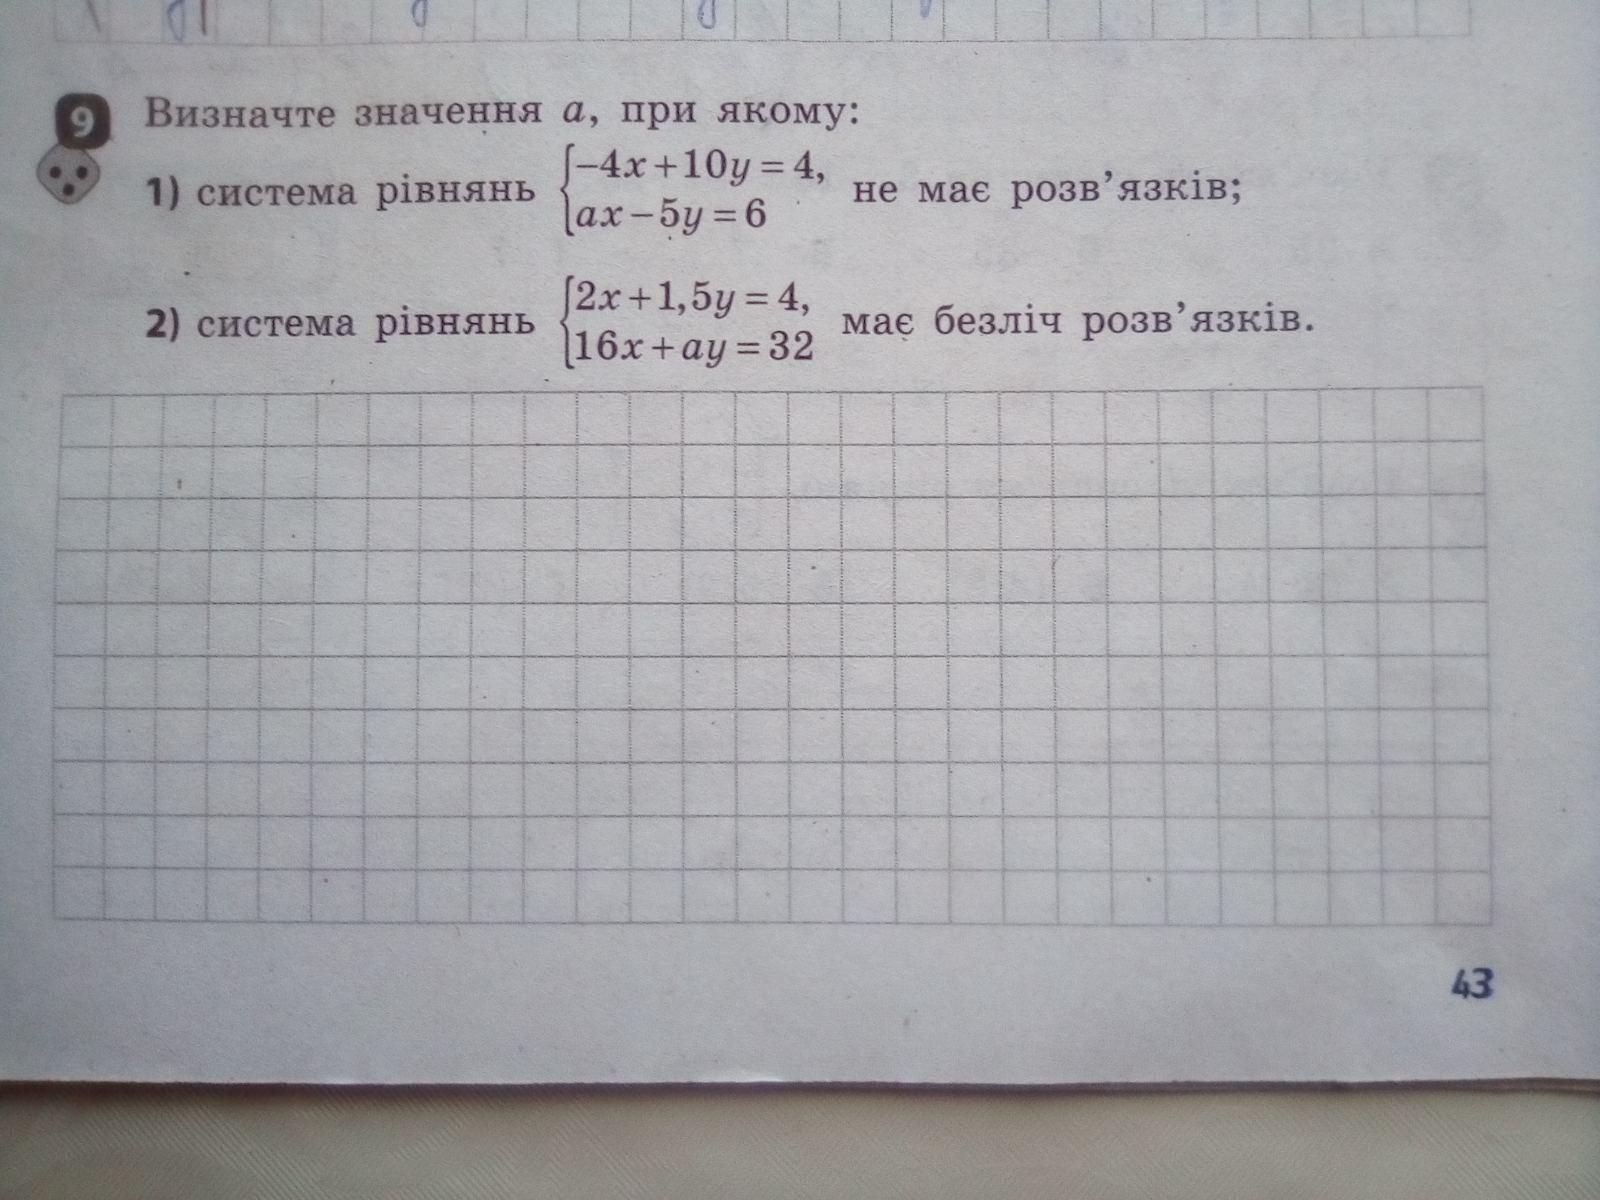 9 Визначте значення a, при якому:
1) система рівнянь {−4x+10y=4, ax−5y=6 не має розв’язків;
2) система рівнянь {2x+1,5y=4, 16x+ay=32 має безліч розв’язків.
43